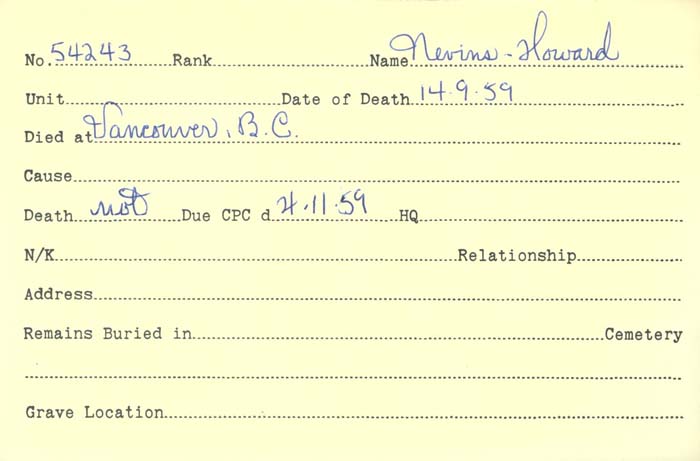 No. 54243 Rank Name Nevins - Howard
Unit Date of Death 14.9.59
Died at Vancouver, B.C.
Cause
Death not Due CPC d 4.11.59 HQ
N/K Relationship
Address
Remains Buried in Cemetery
Grave Location